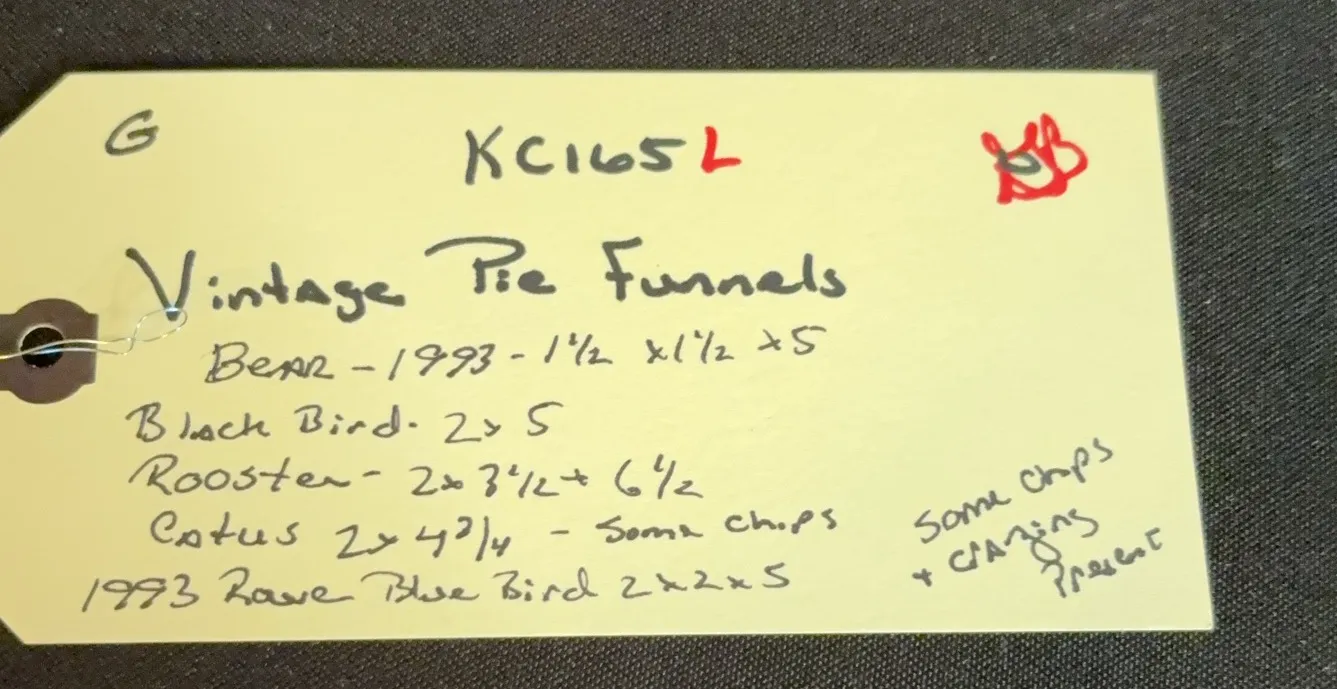 G
KC165L
Vintage Pie Funnels
Bear - 1993 - 1 1/2 x 1 1/2 x 5
Black Bird - 2 x 5
Rooster - 2 x 3 1/2 x 6 1/2
Catus 2 x 4 3/4 - Some chips
1993 Rare Blue Bird 2 x 2 x 5
Some chips
+ crazing
Present